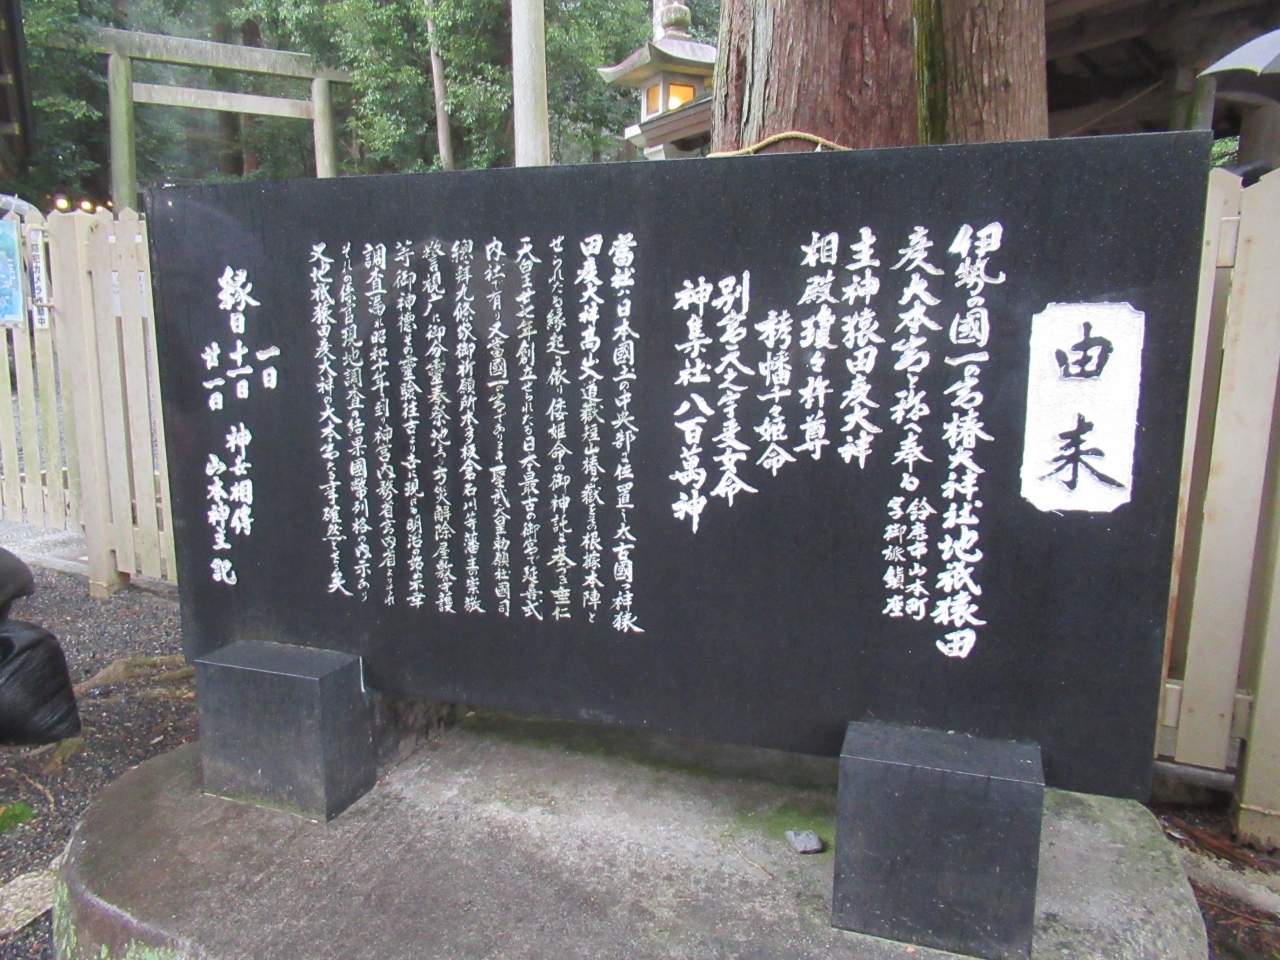 由来
伊勢の國一の宮椿大神社地祇猿田
彦大本宮と称へ奉る 鈴鹿市山本町
字御旅鎮座
主神猿田彦大神
相殿瓊々杵尊
栲幡千々姫命
別宮天之宇受女命
神集社八百萬神
當社ハ日本國土の中央部に位置し太古國つ神猿
田彦大神高山入道嶽短山椿ヶ嶽をその根據本陣と
せられたる縁起に依り倭姫命の御神託に基づき垂仁
天皇廿七年創立せられたる日本最古の御宮で延喜式
内社で有り又當國一の宮であります 聖武天皇勅願社國司
九條家御祈願所本多板倉石川等藩主の崇敬
御分靈奉祭地上方災解除屋敷守護
等御神徳その靈驗往古より去現る明治の
調査濁し昭和十年に到り神宮内務省宮内省より
係官現地調査の結果國幣列格の内示あり
又地祇猿田彦大神の大本宮たる事確然たる矣
縁日 一日
十一日
廿一日
神女相傳
山本神主記